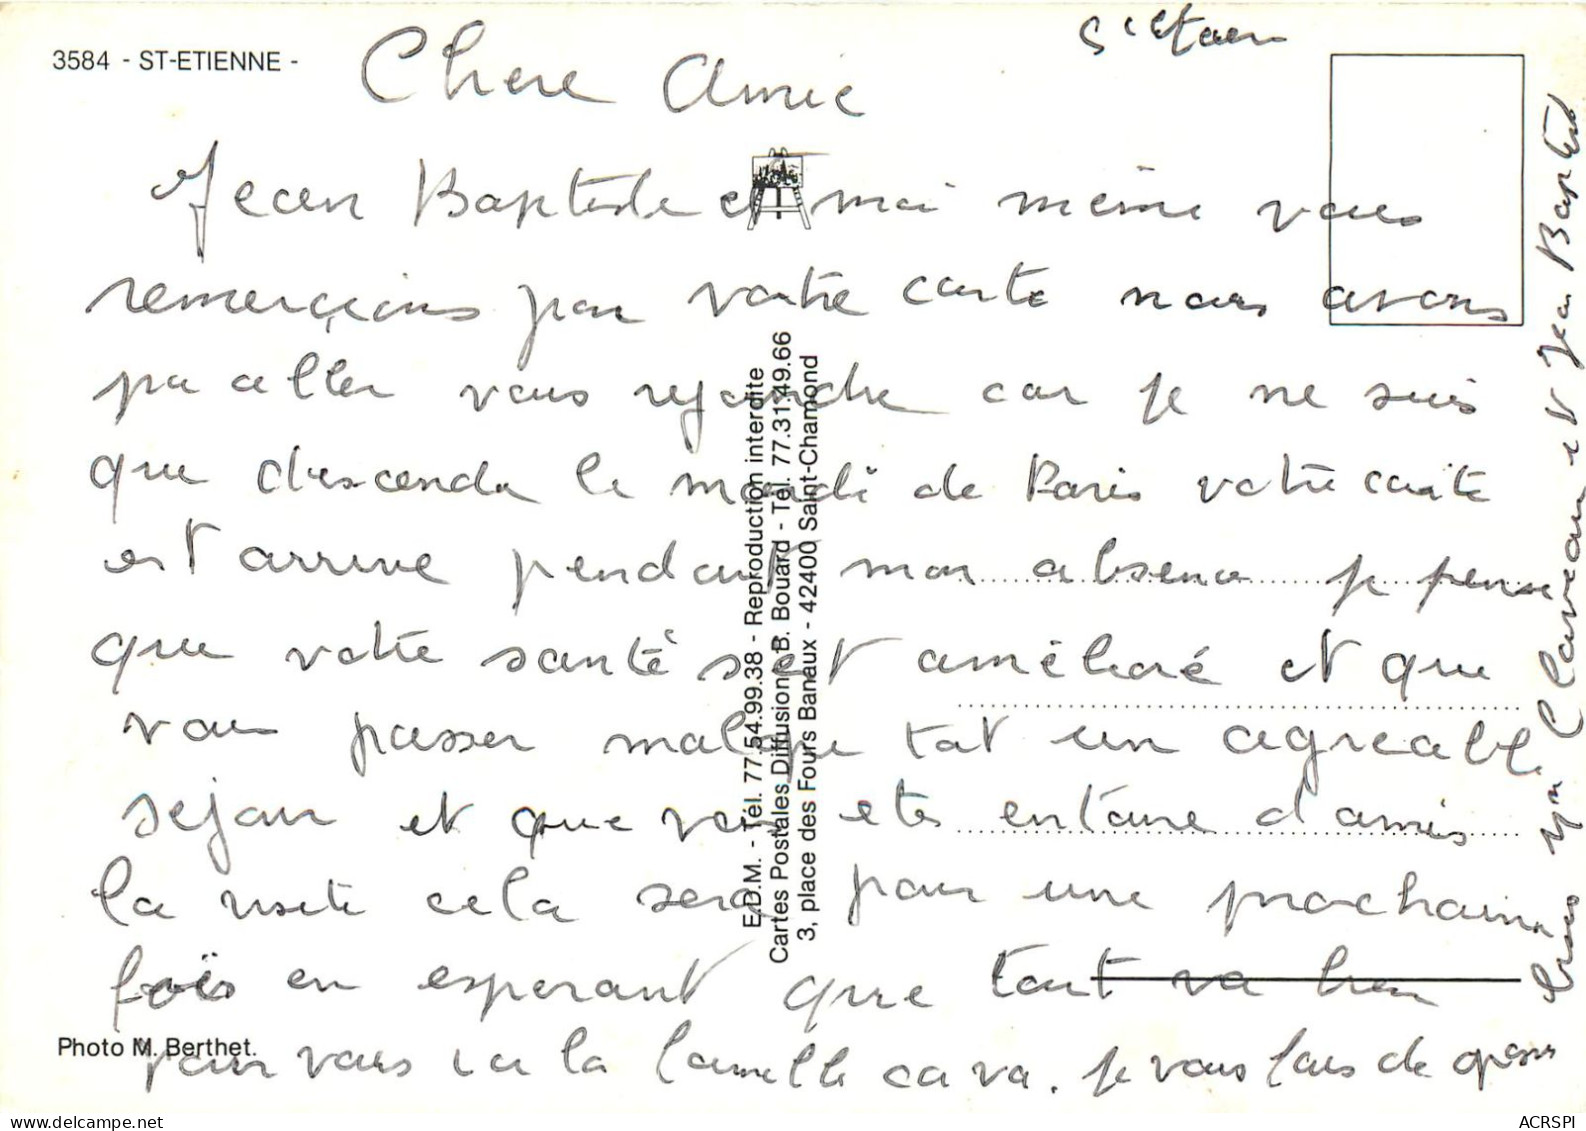 3584 - ST-ETIENNE -
St Etienne
Chere Amie
Jean Baptiste et moi même vous
remerçions pour votre carte nous avons
pu aller vous rejoindre car je ne suis
que descendu le mardi de Paris votre carte
est arrive pendant mon absence je pense
que votre santé s'est amélioré et que
vous passer malgre tout un agreable
sejour et que vous etes entoure d'amis
la visite cela sera pour une prochaine
fois en esperant que tout va bien
pour vous ici la famille ca va. je vous fais de grosses
bises Mme Claveau et Jean Baptiste
E.D.M. - Tél. 77.54.99.38 - Reproduction interdite
Cartes Postales Diffusion - B. Bouard - Tél. 77.31.49.66
3, place des Fours Banaux - 42400 Saint-Chamond
Photo M. Berthet.
ACRSPI